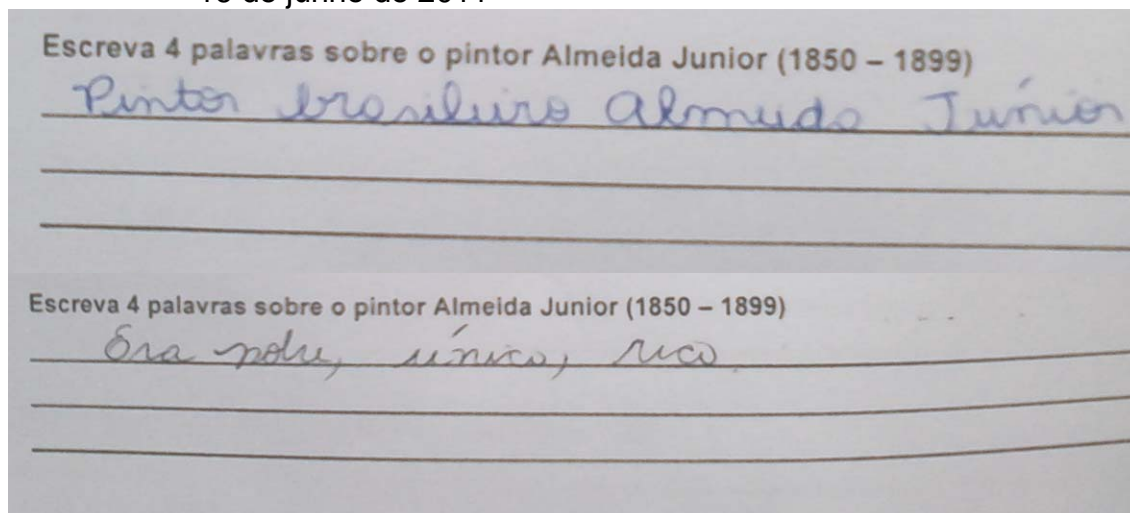 Escreva 4 palavras sobre o pintor Almeida Junior (1850 – 1899)
Pintor brasileiro Almeida Júnior
Escreva 4 palavras sobre o pintor Almeida Junior (1850 – 1899)
Era pobre, único, rico